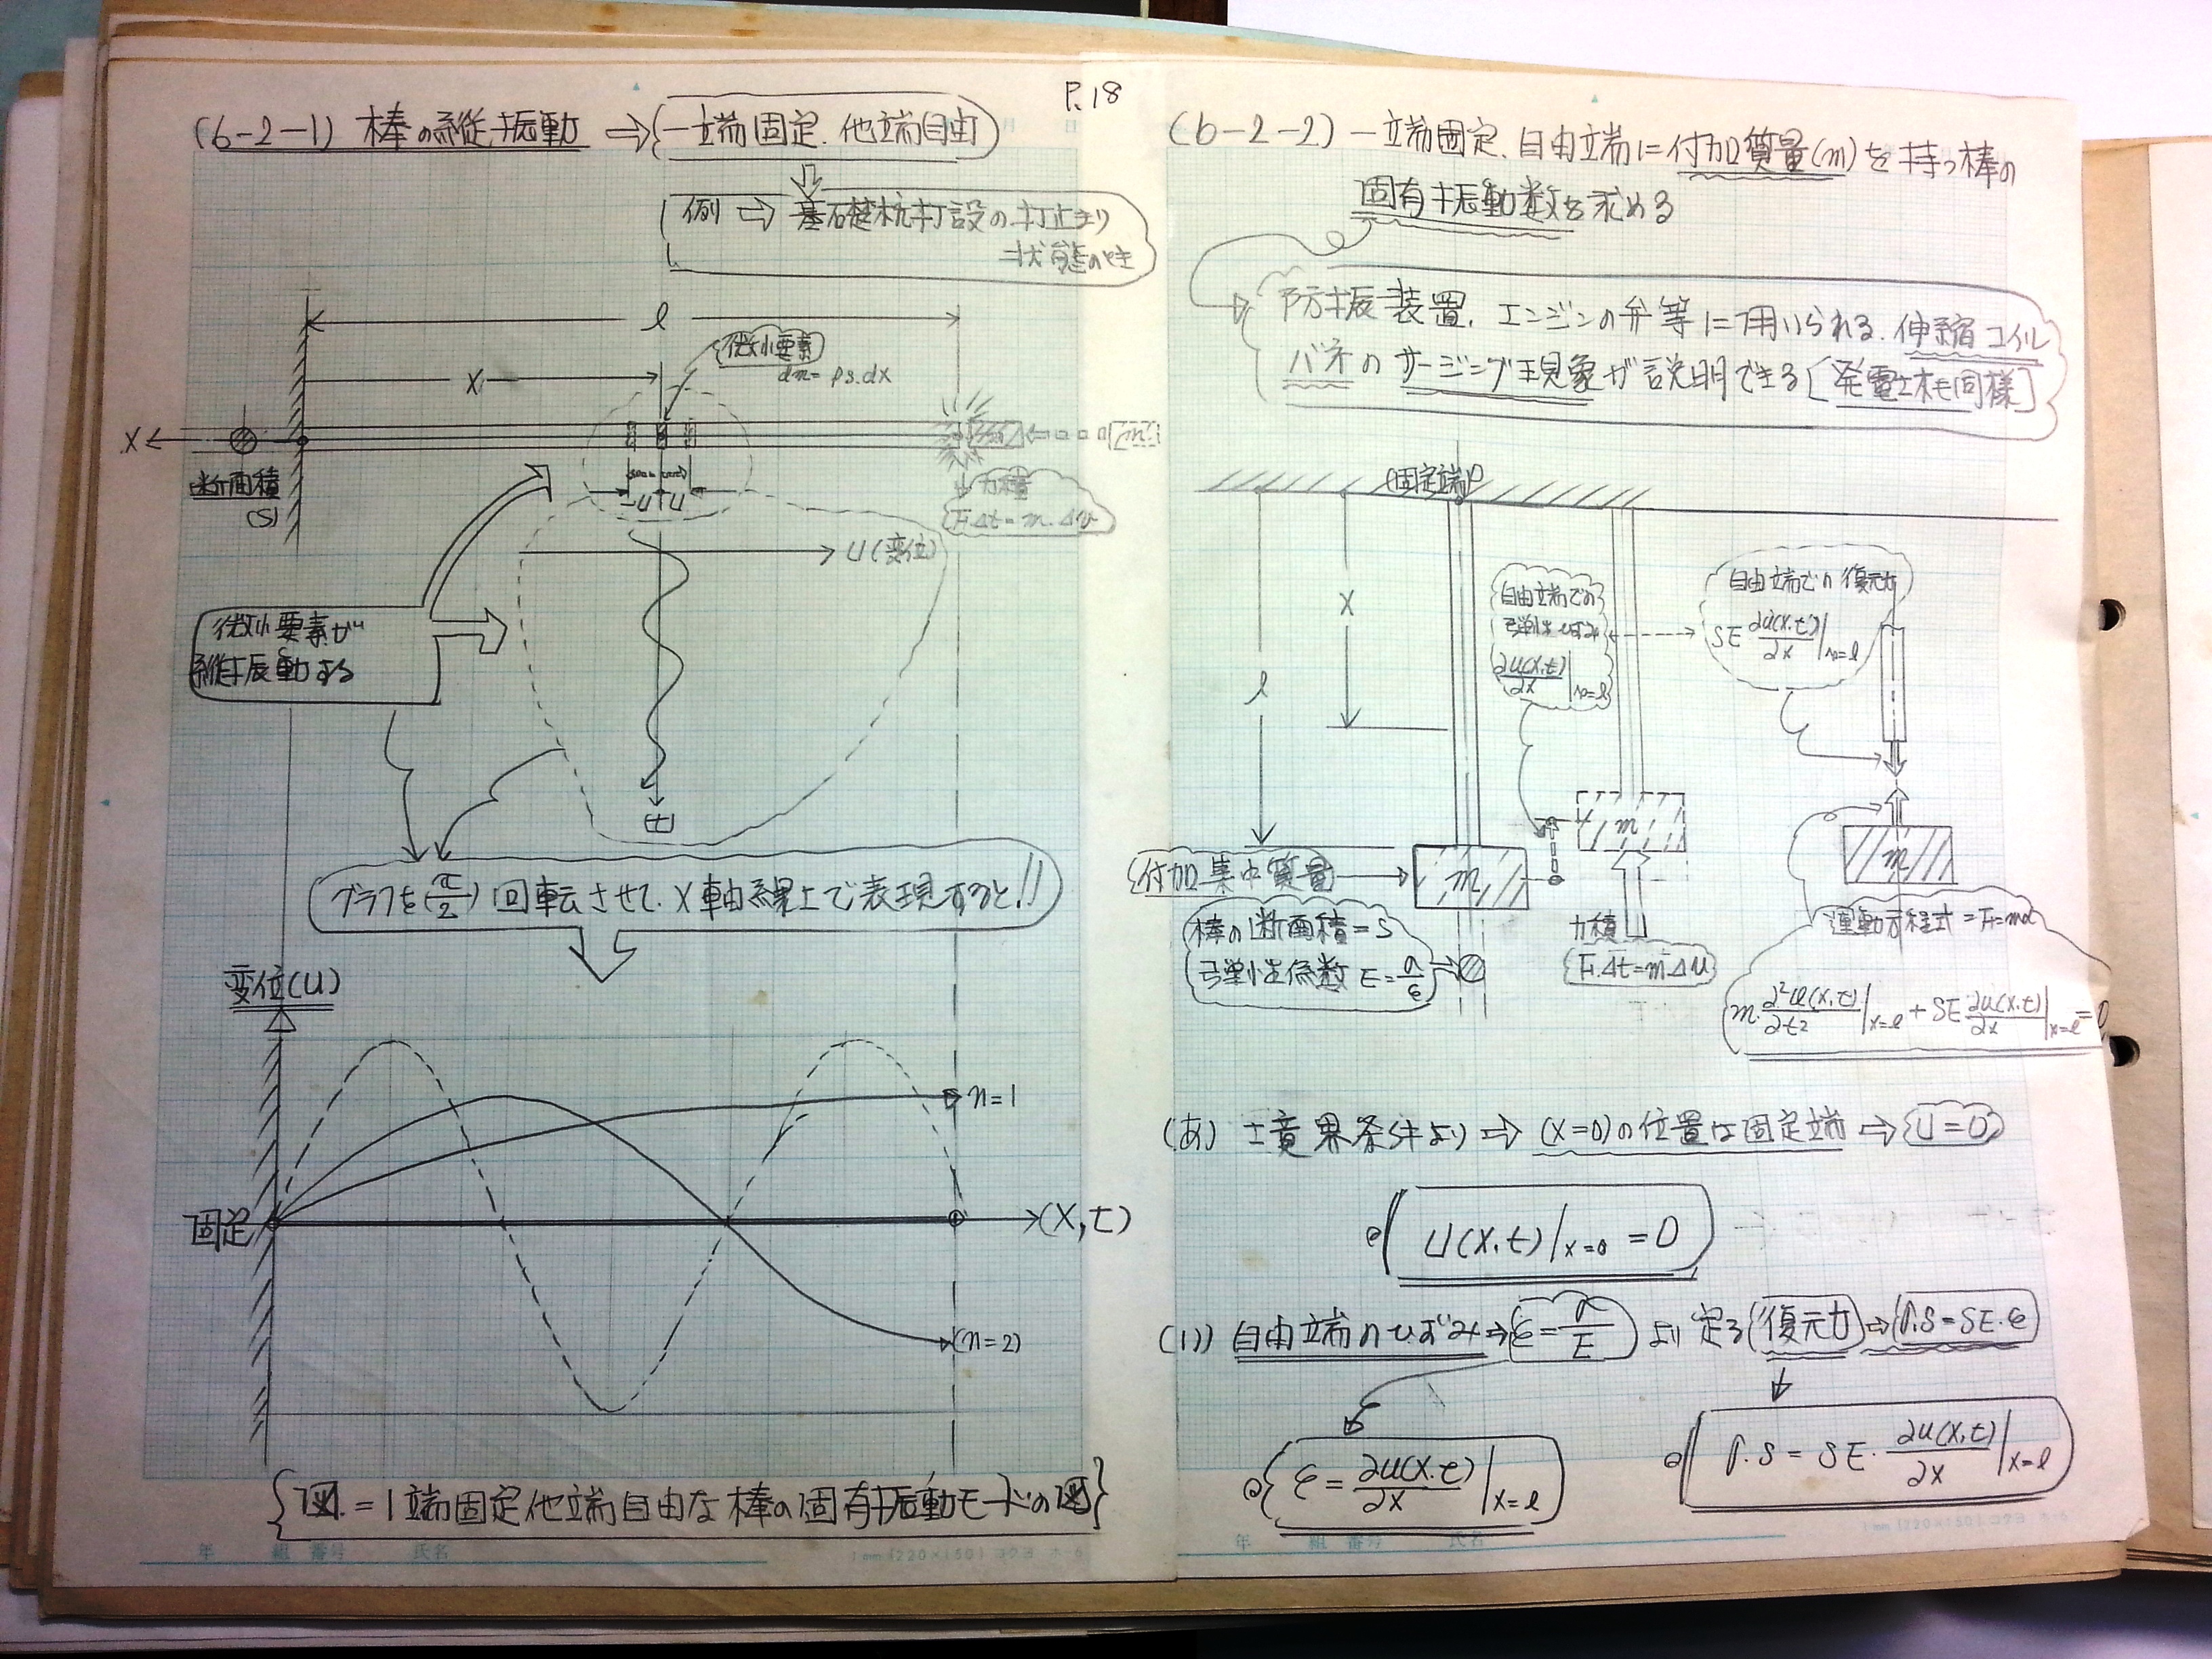 P.18
(6-2-1) 棒の縦振動 ⇒ 一端固定.他端自由
例 ⇒ 基礎杭打設の打止まり
状態の時
l
微小要素
dm = ρs.dx
X
X
m
断面積
(S)
-U
U
力積
F.Δt = m.Δv
U(変位)
微小要素が
縦振動する
(t)
グラフを(π/2)回転させて.X軸線上で表現すると!!
変位(U)
n=1
固定
(X,t)
(n=2)
{図.=1端固定他端自由な棒の固有振動モードの図}
年 組 番号 氏名
1mm(220×150)コクヨ ホ-6
(6-2-2) 一端固定.自由端に付加質量(m)を持つ棒の
固有振動数を求める
防振装置.エンジンの弁等に用いられる.伸縮コイル
バネのサージング現象が説明できる[発電土木も同様]
(固定端)
X
l
自由端での
弾性ひずみ
∂u(x,t)/∂x|x=l
自由端での復元力
SE ∂u(x,t)/∂x|x=l
m
m
m
付加集中質量
棒の断面積=S
弾性係数 E=σ/ε
力積
F.Δt=m.Δu
運動方程式=F=mα
m.∂²u(x,t)/∂t²|x=l + SE ∂u(x,t)/∂x|x=l = 0
(あ) 境界条件より ⇒ (X=0)の位置は固定端 ⇒ U=0
U(X,t)|x=0 = 0
(い) 自由端のひずみ ⇒ ε=σ/E より定る 復元力 ⇒ σ.S=SE.ε
ε = ∂u(x,t)/∂x|x=l
σ.S = SE.∂u(x,t)/∂x|x=l
年 組 番号 氏名
1mm(220×150)コクヨ ホ-6